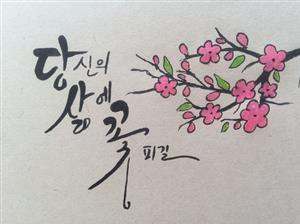 당신의
삶에
꽃
피길